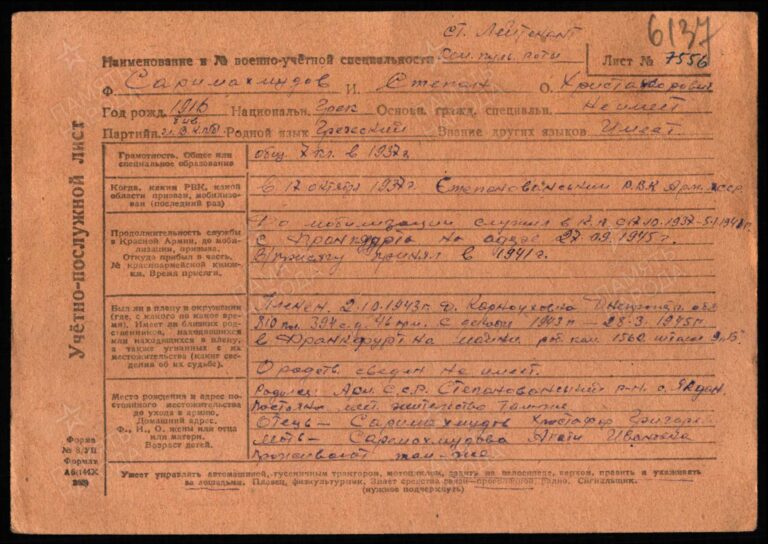 6137
ст. Лейтенант
Наименование и № военно-учётной специальности ком. пуль. роты
Лист № 7556
Ф. Саримахмудов И. Степан О. Христафорович
Год рожд. 1916 Национальн. Грек Основн. гражд. специальн. не имеет
Партийн. Родной язык Греческий Знание других языков Имеет
Учётно-послужной лист
Грамотность. Общее или специальное образование
общ 7 кл. в 1937 г.
Когда, каким РВК, какой области призван, мобилизован (последний раз)
в 17 октября 1937 г. Степанованский РВК Арм. ССР.
Продолжительность службы в Красной Армии, до мобилизации, призыва. Откуда прибыл в часть. № красноармейской книжки. Время присяги.
По мобилизации служил в К.А. с 17.10.1937-5.1.1941 г.
с на 27.09.1945 г.
В/присягу принял в 1941 г.
Был ли в плену и окружении (где, с какого по какое время). Имеет ли близких родственников, находившихся или находящихся в плену, а также угнанных с их местожительства (какие сведения об их судьбе).
Пленен 2.10.1943 г. д. Карноуховка обл
810 п. 394 с.д. 46 арм. С 1943 г — 28.3.1945 г.
в Франкфурт на Майни раб. ком. 1560
О родств. сведен не имеет.
Место рождения и адрес постоянного местожительства до ухода в армию. Домашний адрес. Ф., И., О. жены или отца или матери. Возраст детей.
Родился: Арм. С.с.Р. Степанованский р-н с. Ягдан.
Постоян. мест. жительство тамже
Отец — Саримахмудов Христафор Григор.
Мать — Саримахмудова Агати Ивановна
Проживают там-же
Форма № 8/УП
Формат А6(144X203)
Умеет управлять автомашиной, гусеничным трактором, мотоциклом, ездить на велосипеде, верхом, править и ухаживать за лошадьми. Пловец, физкультурник. Знает средства связи—проволочной, радио. Сигнальщик.
(нужное подчеркнуть)
ПАМЯТЬ НАРОДА